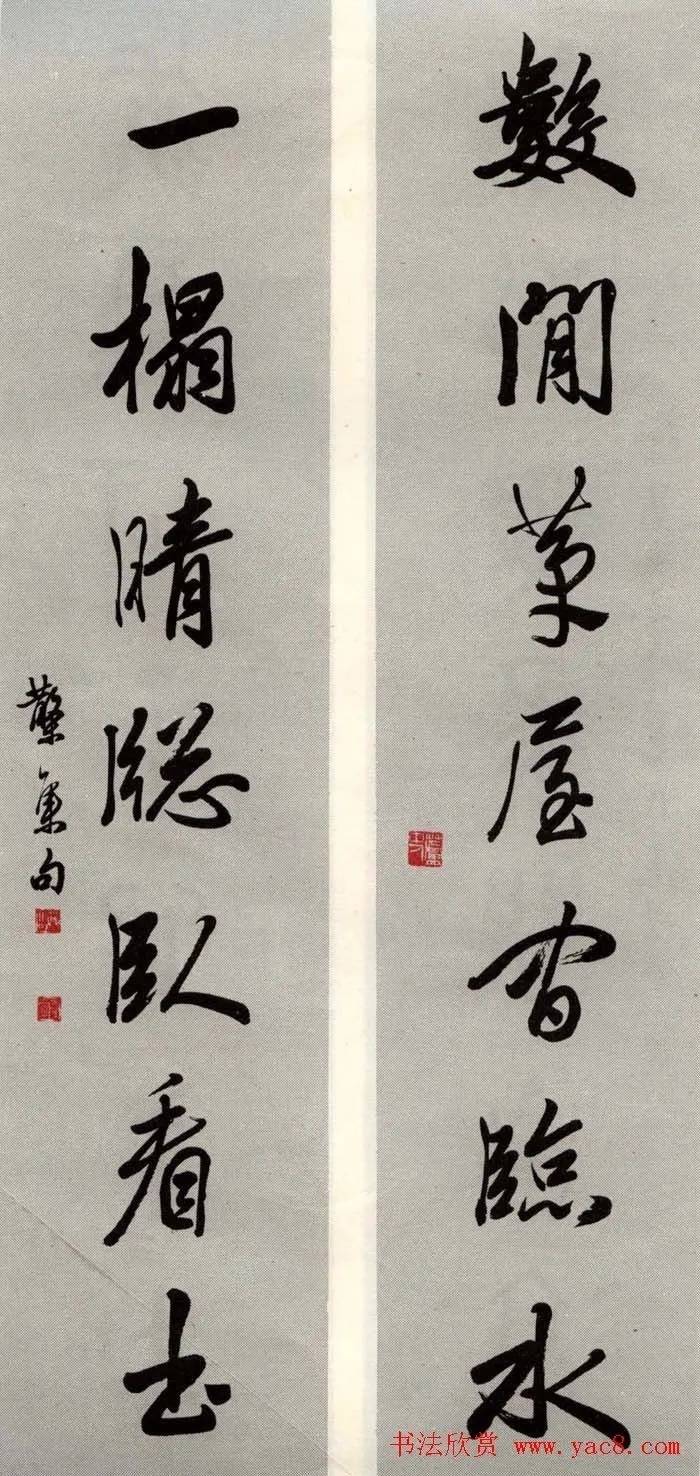 數閒茅屋閒臨水
一榻晴牕臥看書
集句
书法欣赏 www.yac8.com